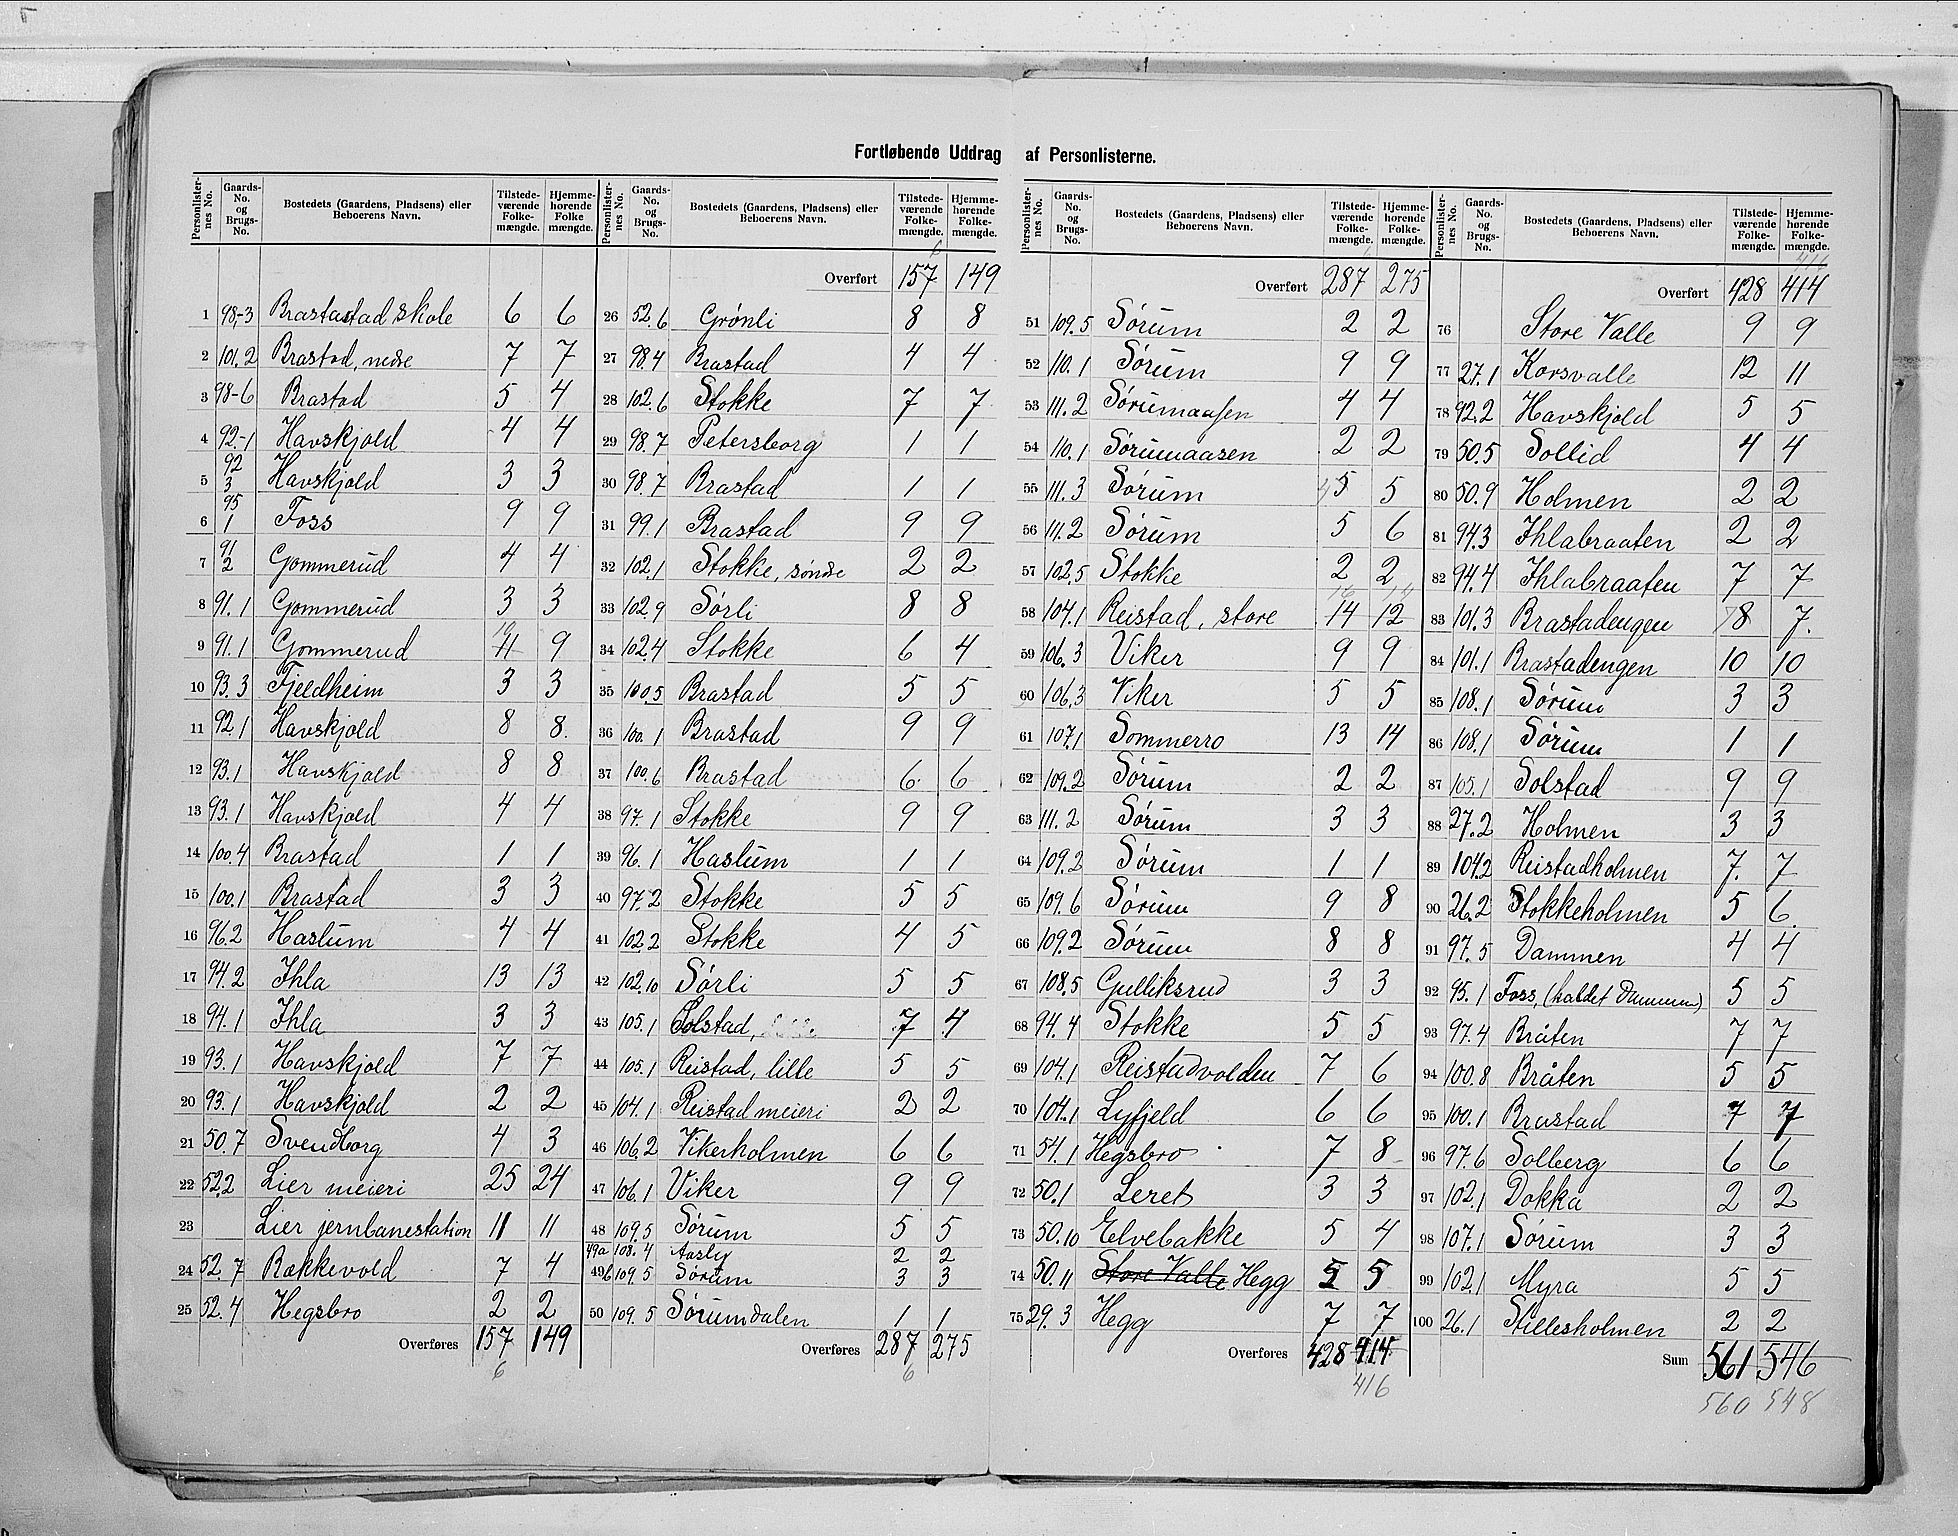 Fortløbende Uddrag af Personlisterne.
Personlisternes No. | Gaards-No. og Brugs-No. | Bostedets (Gaardens, Pladsens) eller Beboerens Navn. | Tilstedeværende Folkemængde. | Hjemmehørende Folkemængde.
1 98,-3 Brastadstad skole 6 6
2 101.2 Brastad, nedre 7 7
3 98-6 Brastad 5 4
4 92-1 Havskjold 4 4
5 92 3 Havskjold 3 3
6 95 1 Foss 9 9
7 91 2 Gommerud 4 4
8 91.1 Gommerud 3 3
9 91.1 Gommerud 11 10 9
10 93.3 Fjeldheim 3 3
11 92.1 Havskjold 8 8.
12 93.1 Havskjold 8 8
13 93.1 Havskjold 4 4
14 100.4 Brastad 1 1
15 100.1 Brastad 3 3
16 96.2 Haslum 4 4
17 94.2 Ihla 13 13
18 94.1 Ihla 3 3
19 93.1 Havskjold 7 7
20 93.1 Havskjold 2 2
21 50.7 Svendborg 4 3
22 52.2 Lier meieri 25 24
23 Lier jernbanestation 11 11
24 52.7 Rækkevold 7 4
25 52.4 Hegsbro 2 2
Overføres 157 149
6
Personlisternes No. | Gaards-No. og Brugs-No. | Bostedets (Gaardens, Pladsens) eller Beboerens Navn. | Tilstedeværende Folkemængde. | Hjemmehørende Folkemængde.
6
Overført 157 149
26 52.6 Grönli 8 8
27 98.4 Brastad 4 4
28 102.6 Stokke 7 7
29 98.7 Petersborg 1 1
30 98.7 Brastad 1 1
31 99.1 Brastad 9 9
32 102.1 Stokke, söndre 2 2
33 102.9 Sørli 8 8
34 102.4 Stokke 6 4
35 100.5 Brastad 5 5
36 100.1 Brastad 9 9
37 100.6 Brastad 6 6
38 97.1 Stokke 9 9
39 96.1 Haslum 1 1
40 97.2 Stokke 5 5
41 102.2 Stokke 4 5
42 102.10 Sørli 5 5
43 105.1 Solstad, 7 4
44 105.1 Reistad, lille 5 5
45 104.1 Reistad meieri 2 2
46 106.2 Vikerholmen 6 6
47 106.1 Viker 9 9
48 109.5 Sørum 5 5
49a 108.4 Aasly 2 2
49b 109.5 Sørum 3 3
50 109.5 Sørumdalen 1 1
Overføres 287 275
6
Personlisternes No. | Gaards-No. og Brugs-No. | Bostedets (Gaardens, Pladsens) eller Beboerens Navn. | Tilstedeværende Folkemængde. | Hjemmehørende Folkemængde.
Overført 287 275
51 109.5 Sørum 2 2
52 110.1 Sørum 9 9
53 111.2 Sørumaasen 4 4
54 110.1 Sørumaasen 2 2
55 111.3 Sørum 5 5
56 111.2 Sørum 5 6
57 102.5 Stokke 2 2
16 14
58 104.1 Reistad, store 14 12
59 106.3 Viker 9 9
60 106.3 Viker 5 5
61 107.1 Sommerro 13 14
62 109.2 Sørum 2 2
63 111.2 Sørum 3 3
64 109.2 Sørum 1 1
65 109.6 Sørum 9 8
66 109.2 Sørum 8 8
67 108.5 Gulliksrud 3 3
68 94.4 Stokke 5 5
69 104.1 Reistadvolden 7 6
70 104.1 Lyfjeld 6 6
71 54.1 Hegsbro 7 8
72 50.1 Leret 3 3
73 50.10 Elvebakke 5 4
74 50.11 Store Valle Hegg 5 5
75 29.3 Hegg 7 7
Overføres 428 414
416
Personlisternes No. | Gaards-No. og Brugs-No. | Bostedets (Gaardens, Pladsens) eller Beboerens Navn. | Tilstedeværende Folkemængde. | Hjemmehørende Folkemængde.
416
Overført 428 414
76 Store Valle 9 9
77 27.1 Korsvalle 12 11
78 92.2 Havskjold 5 5
79 50.5 Sollid 4 4
80 50.9 Holmen 2 2
81 94.3 Ihlabraaten 2 2
82 94.4 Ihlabraaten 7 7
83 101.3 Brastadengen 8 7.
84 101.1 Brastadengen 10 10
85 108.1 Sørum 3 3
86 108.1 Sørum 1 1
87 105.1 Solstad 9 9
88 27.2 Holmen 3 3
89 104.2 Reistadholmen 7. 7
90 26.2 Stokkeholmen 5 6.
91 97.5 Dammen 4 4
92 95.1 Foss, (kaldet Dammen) 5 5
93 97.4 Bråten 7 7
94 100.8 Bråten 5 5
95 100.1 Brastad 7 7
96 97.6 Solberg 6 6
97 102.1 Dokka 2 2
98 107.1 Sørum 3 3
99 102.1 Myra 5 5
100 26.1 Stillesholmen 2 2
Sum 561 546
560 548